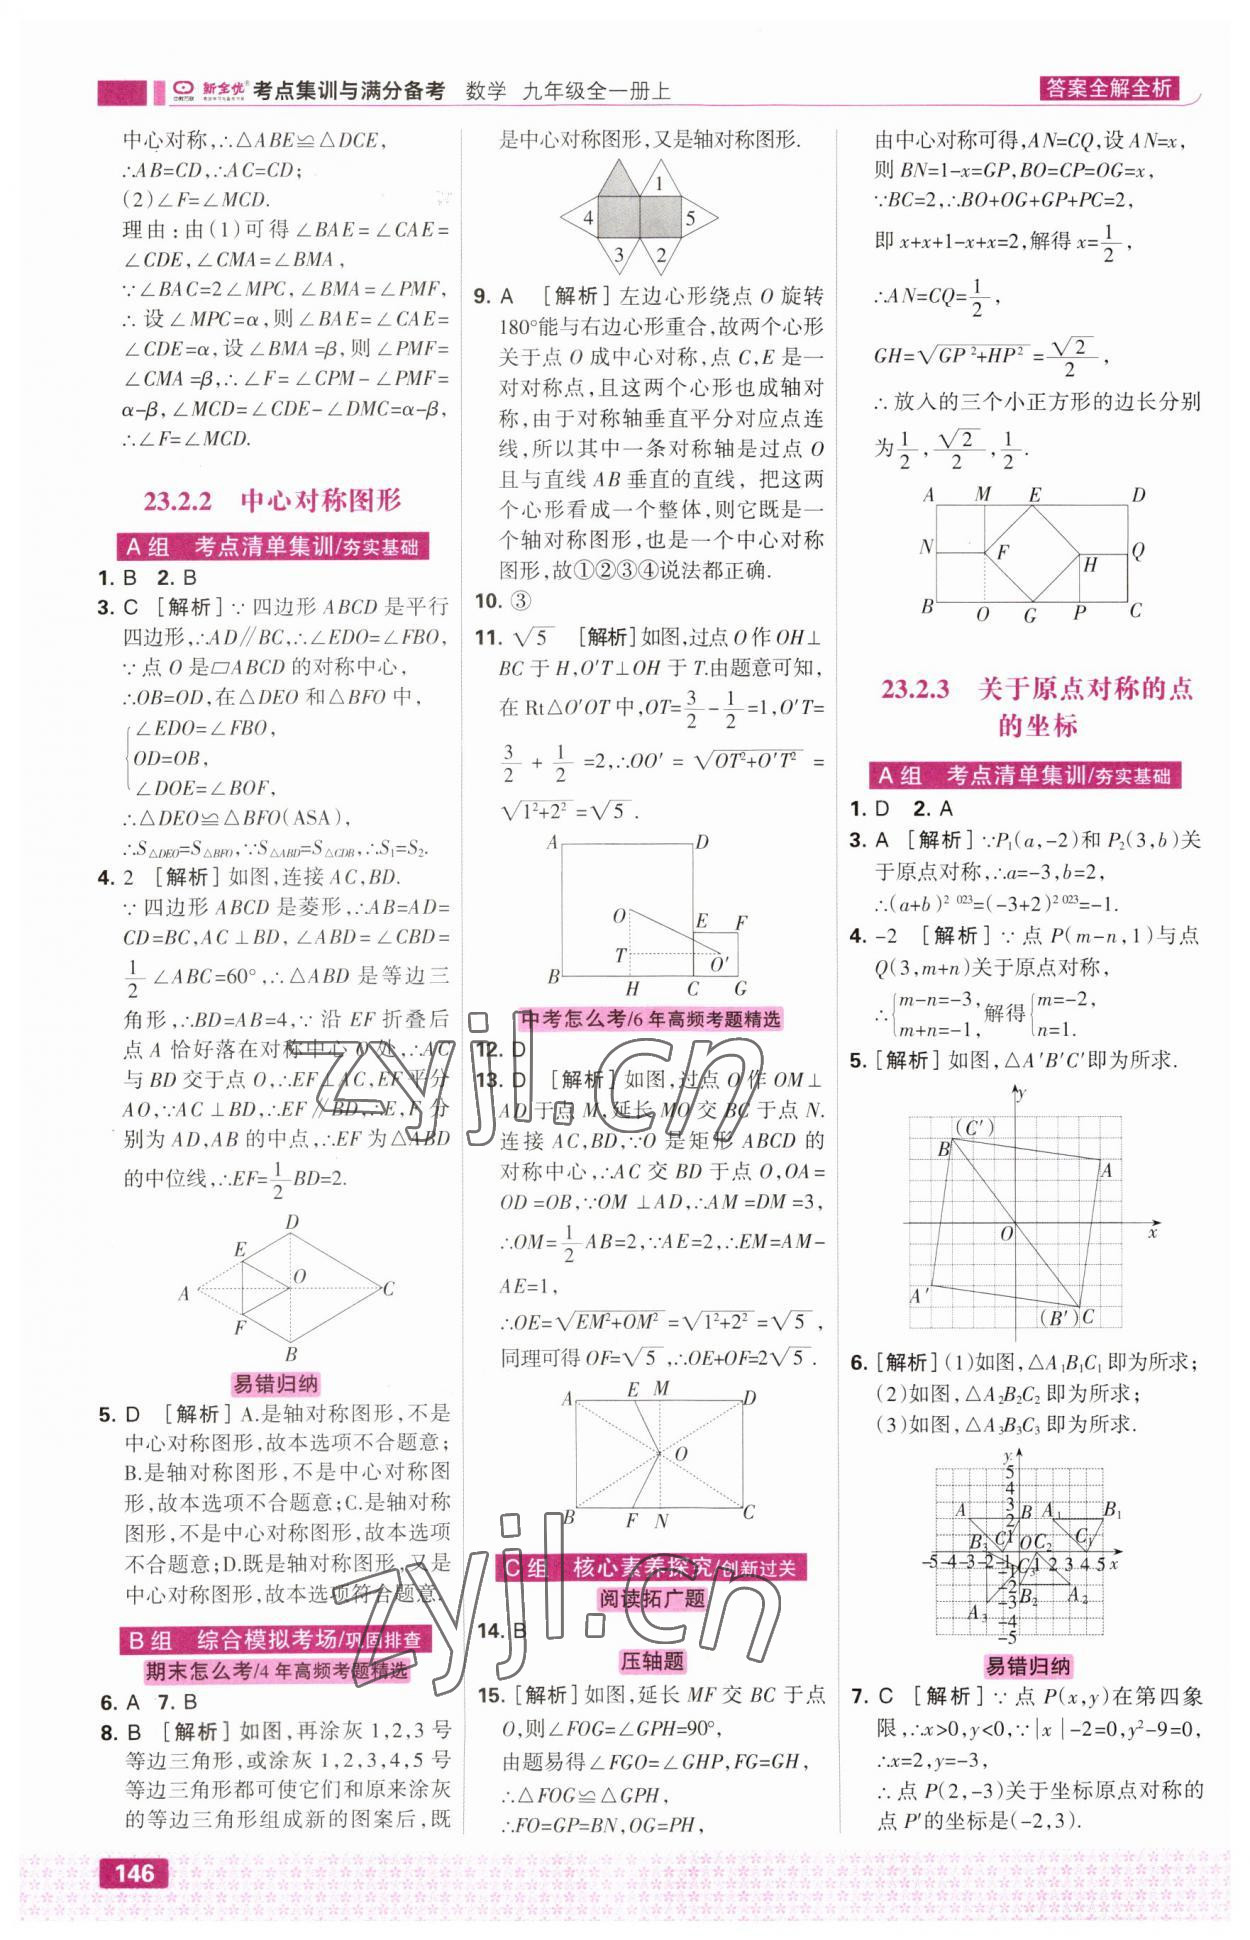 新全优 考点集训与满分备考 数学 九年级全一册上
答案全解全析
中心对称,∴△ABE≌△DCE,
∴AB=CD,∴AC=CD;
(2)∠F=∠MCD.
理由:由(1)可得∠BAE=∠CAE=
∠CDE,∠CMA=∠BMA,
∵∠BAC=2∠MPC,∠BMA=∠PMF,
∴设∠MPC=α,则∠BAE=∠CAE=
∠CDE=α,设∠BMA=β,则∠PMF=
∠CMA=β,∴∠F=∠CPM-∠PMF=
α-β,∠MCD=∠CDE-∠DMC=α-β,
∴∠F=∠MCD.
23.2.2 中心对称图形
A组 考点清单集训/夯实基础
1. B 2. B
3. C [解析]∵四边形ABCD是平行
四边形,∴AD∥BC,∴∠EDO=∠FBO,
∵点O是▱ABCD的对称中心,
∴OB=OD,在△DEO和△BFO中,
{∠EDO=∠FBO,
OD=OB,
∠DOE=∠BOF,
∴△DEO≌△BFO(ASA),
∴S△DEO=S△BFO,∵S△ABD=S△CDB,∴S₁=S₂.
4. 2 [解析]如图,连接AC,BD.
∵四边形ABCD是菱形,∴AB=AD=
CD=BC,AC⊥BD,∠ABD=∠CBD=
1/2∠ABC=60°,∴△ABD是等边三
角形,∴BD=AB=4,∵沿EF折叠后
点A恰好落在对称中心O处,∴AC
与BD交于点O,∴EF⊥AC,EF平分
AO,∵AC⊥BD,∴EF∥BD,∴E,F分
别为AD,AB的中点,∴EF为△ABD
的中位线,∴EF=1/2BD=2.
D
E
O
A
C
F
B
易错归纳
5. D [解析]A.是轴对称图形,不是
中心对称图形,故本选项不合题意;
B.是轴对称图形,不是中心对称图
形,故本选项不合题意;C.是轴对称
图形,不是中心对称图形,故本选项
不合题意;D.既是轴对称图形,又是
中心对称图形,故本选项符合题意.
B组 综合模拟考场/巩固排查
期末怎么考/4年高频考题精选
6. A 7. B
8. B [解析]如图,再涂灰1,2,3号
等边三角形,或涂灰1,2,3,4,5号
等边三角形都可使它们和原来涂灰
的等边三角形组成新的图案后,既
146
是中心对称图形,又是轴对称图形.
1
4 5
3 2
9. A [解析]左边心形绕点O旋转
180°能与右边心形重合,故两个心形
关于点O成中心对称,点C,E是一
对对称点,且这两个心形也成轴对
称,由于对称轴垂直平分对应点连
线,所以其中一条对称轴是过点O
且与直线AB垂直的直线,把这两
个心形看成一个整体,则它既是一
个轴对称图形,也是一个中心对称
图形,故①②③④说法都正确.
10. ③
11. √5 [解析]如图,过点O作OH⊥
BC于H,O′T⊥OH于T.由题意可知,
在Rt△O′OT中,OT=3/2-1/2=1,O′T=
3/2+1/2=2,∴OO′=√(OT²+O′T²)=
√(1²+2²)=√5.
A D
O E F
T O′
B H C G
中考怎么考/6年高频考题精选
12. D
13. D [解析]如图,过点O作OM⊥
AD于点M,延长MO交BC于点N.
连接AC,BD,∵O是矩形ABCD的
对称中心,∴AC交BD于点O,OA=
OD=OB,∵OM⊥AD,∴AM=DM=3,
∴OM=1/2AB=2,∵AE=2,∴EM=AM-
AE=1,
∴OE=√(EM²+OM²)=√(1²+2²)=√5,
同理可得OF=√5,∴OE+OF=2√5.
A E M D
O
B F N C
C组 核心素养探究/创新过关
阅读拓广题
14. B
压轴题
15. [解析]如图,延长MF交BC于点
O,则∠FOG=∠GPH=90°,
由题易得∠FGO=∠GHP,FG=GH,
∴△FOG≌△GPH,
∴FO=GP=BN,OG=PH,
由中心对称可得,AN=CQ,设AN=x,
则BN=1-x=GP,BO=CP=OG=x,
∵BC=2,∴BO+OG+GP+PC=2,
即x+x+1-x+x=2,解得x=1/2,
∴AN=CQ=1/2,
GH=√(GP²+HP²)=√2/2,
∴放入的三个小正方形的边长分别
为1/2,√2/2,1/2.
A M E D
N F H Q
B O G P C
23.2.3 关于原点对称的点
的坐标
A组 考点清单集训/夯实基础
1. D 2. A
3. A [解析]∵P₁(a,-2)和P₂(3,b)关
于原点对称,∴a=-3,b=2,
∴(a+b)²⁰²³=(-3+2)²⁰²³=-1.
4. -2 [解析]∵点P(m-n,1)与点
Q(3,m+n)关于原点对称,
∴{m-n=-3, m+n=-1, 解得{m=-2, n=1.
5. [解析]如图,△A′B′C′即为所求.
y
(C′)
B
A
O x
A′
(B′) C
6. [解析](1)如图,△A₁B₁C₁即为所求;
(2)如图,△A₂B₂C₂即为所求;
(3)如图,△A₃B₃C₃即为所求.
y
5
4
3
A 2 B A₁ B₁
B₃ C 1 OC₂ C₁
-5-4-3-2-1 1 2 3 4 5 x
C₃
-2 B₂ A₂
A₃ -3
-4
-5
易错归纳
7. C [解析]∵点P(x,y)在第四象
限,∴x>0,y<0,∵|x|-2=0,y²-9=0,
∴x=2,y=-3,
∴点P(2,-3)关于坐标原点对称的
点P′的坐标是(-2,3).
zyjl.cn
zyjl.cn